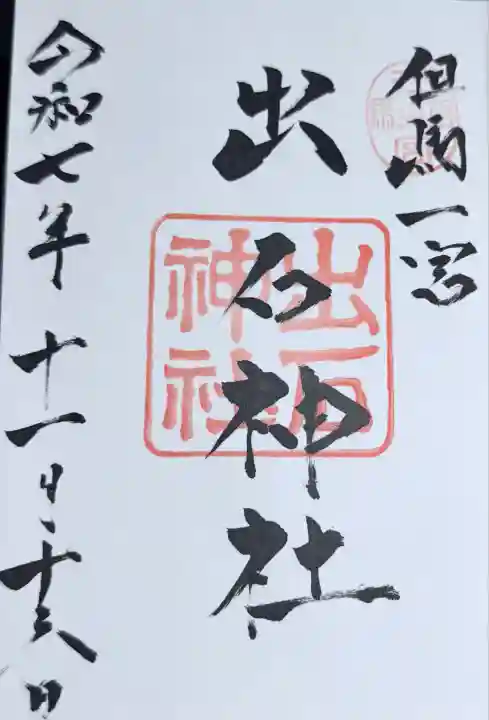 但馬一宮
出石神社
出石
神社
令和七年十一月十日